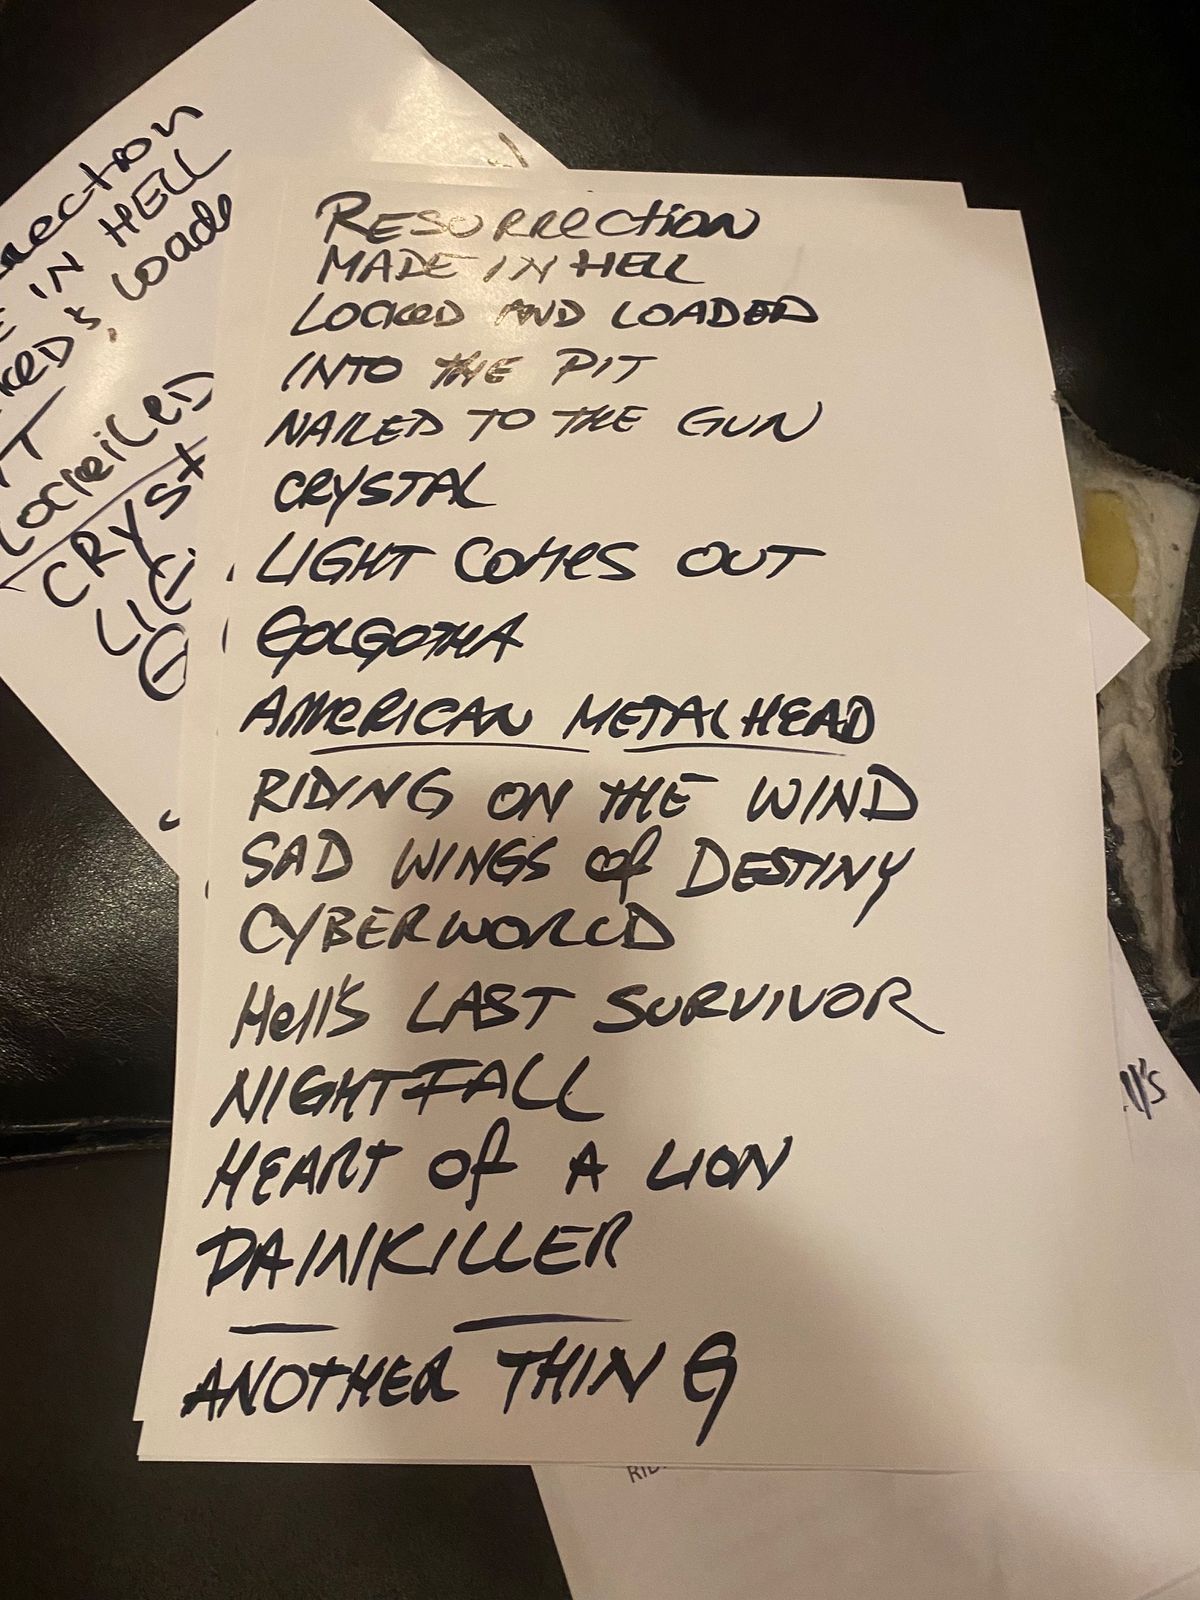 RESURRECTION
MADE IN HELL
LOCKED AND LOADED
INTO THE PIT
NAILED TO THE GUN
CRYSTAL
LIGHT COMES OUT
GOLGOTHA
AMERICAN METALHEAD
RIDING ON THE WIND
SAD WINGS of DESTINY
CYBERWORLD
Hell's LAST SURVIVOR
NIGHTFALL
HEART of A LION
PAINKILLER
ANOTHER THING
IN HELL
loade
CRYST